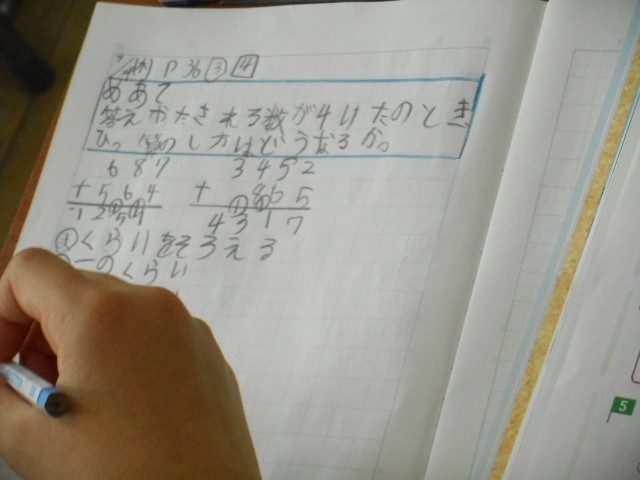 P 36 ③ 4
めあて
答えやたされる数が4けたのとき
ひっ算のしかたはどうなるか。
687 3452
+564 + 865
1251 4317
①くらいをそろえる
②一のくらい
5